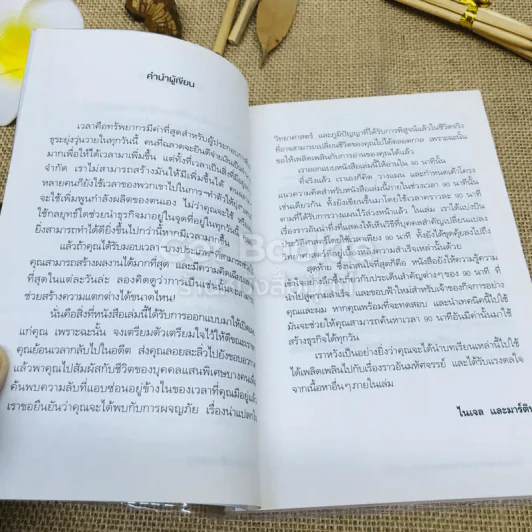 คำนำผู้เขียน
เวลาคือทรัพยากรมีค่าที่สุดสำหรับผู้ประกอบการ
ธุระยุ่งวุ่นวายในทุกวันนี้ คนที่ฉลาดจะยินดีจ่ายเงินเป็น
มากเพื่อให้ได้เวลามาเพิ่มขึ้น แต่ทั้งที่เวลาเป็นสิ่งที่
จำกัด เราไม่สามารถสร้างมันให้มีเพิ่มขึ้นได้
หลายคนก็ยังใช้เวลาของพวกเขาไปในการ
จะใช้เพิ่มพูนกำลังผลิตของตนเอง ไม่ว่าคุณจะใช้
ใช้กลยุทธ์ใดช่วยนำธุรกิจมาอยู่ในจุดที่อยู่ในทุกวันนี้
ยิ่งสามารถทำได้ดียิ่งขึ้นไปกว่านี้หากมีเวลามากขึ้น
แล้วถ้าคุณได้รับมอบเวลา บางประเภทที่
คุณสามารถสร้างผลงานได้มากที่สุด และมีความคิด
ที่สุดในแต่ละวันล่ะ ลองคิดดูว่าการเป็นเช่นนั้นจะ
ช่วยสร้างความแตกต่างได้ขนาดไหน!
นั่นคือสิ่งที่หนังสือเล่มนี้ได้รับการออกแบบมาให้
แก่คุณ เพราะฉะนั้น จงเตรียมตัวเตรียมใจไว้ให้ดีขณะ
คุณย้อนเวลากลับไปในอดีต ส่งคุณลอยละลิ่วไปยังขอบ
แล้วพาคุณไปสัมผัสกับชีวิตของบุคคลแสนพิเศษบางคน
ค้นพบความลับที่แอบซ่อนอยู่ข้างในของเวลาที่คุณมีอยู่
เราขอยืนยันว่าคุณจะได้พบกับการผจญภัย เรื่องน่า
วิทยาศาสตร์ และภูมิปัญญาที่ได้รับการพิสูจน์แล้วในชีวิตจริง
ที่อาจสามารถเปลี่ยนชีวิตของคุณไปได้ตลอดกาล เพราะฉะนั้น
ขอให้เพลิดเพลินกับการอ่านของคุณได้แล้ว
เราออกแบบหนังสือเล่มนี้ให้อ่านใน 90 นาทีนั้น
ที่จริงแล้ว เราเองก็คิด วางแผน และกำหนดเค้าโครง
แนวความคิดสำหรับหนังสือเล่มนี้ภายในช่วงเวลา 90 นาทีนั้น
เช่นเดียวกัน ทั้งยังเขียนขึ้นมาโดยใช้เวลาคราวละ 90 นาที
ตามที่ได้รับการวางแผนไว้ล่วงหน้าแล้ว ในเล่ม เราได้แบ่งปัน
เรื่องราวอันน่าทึ่งที่แสดงให้เห็นถึงวิธีที่บุคคลสำคัญเปลี่ยนแปลง
ประวัติศาสตร์โดยใช้เวลาเพียง 90 นาที ทั้งยังได้ขุดคุ้ยลงไปถึง
วิทยาศาสตร์ที่ซ่อนอยู่เบื้องหลังความสำเร็จเหล่านั้นด้วย
สุดท้าย ซึ่งน่าสนใจที่สุดก็คือ หนังสือยังให้ความรู้ความ
เกี่ยวกับประเด็นสำคัญต่างๆ ของ 90 นาที ที่
นำไปสู่ความสำเร็จ และขอบฟ้าใหม่สำหรับเจ้าของกิจการอย่าง
คุณและผม หากคุณพร้อมที่จะทดสอบ และนำเทคนิคนี้ไปใช้
มันจะช่วยให้คุณสามารถค้นหาเวลา 90 นาทีอันมีค่านั้นมาใช้
สร้างธุรกิจได้ทุกวัน
เราหวังเป็นอย่างยิ่งว่าคุณจะได้นำบทเรียนเหล่านี้ไปใช้
ได้เพลิดเพลินไปกับเรื่องราวอันมหัศจรรย์ และได้รับแรงดลใจ
จากเนื้อหาอื่นๆ ภายในเล่ม
ไนเจล และมาร์ติน